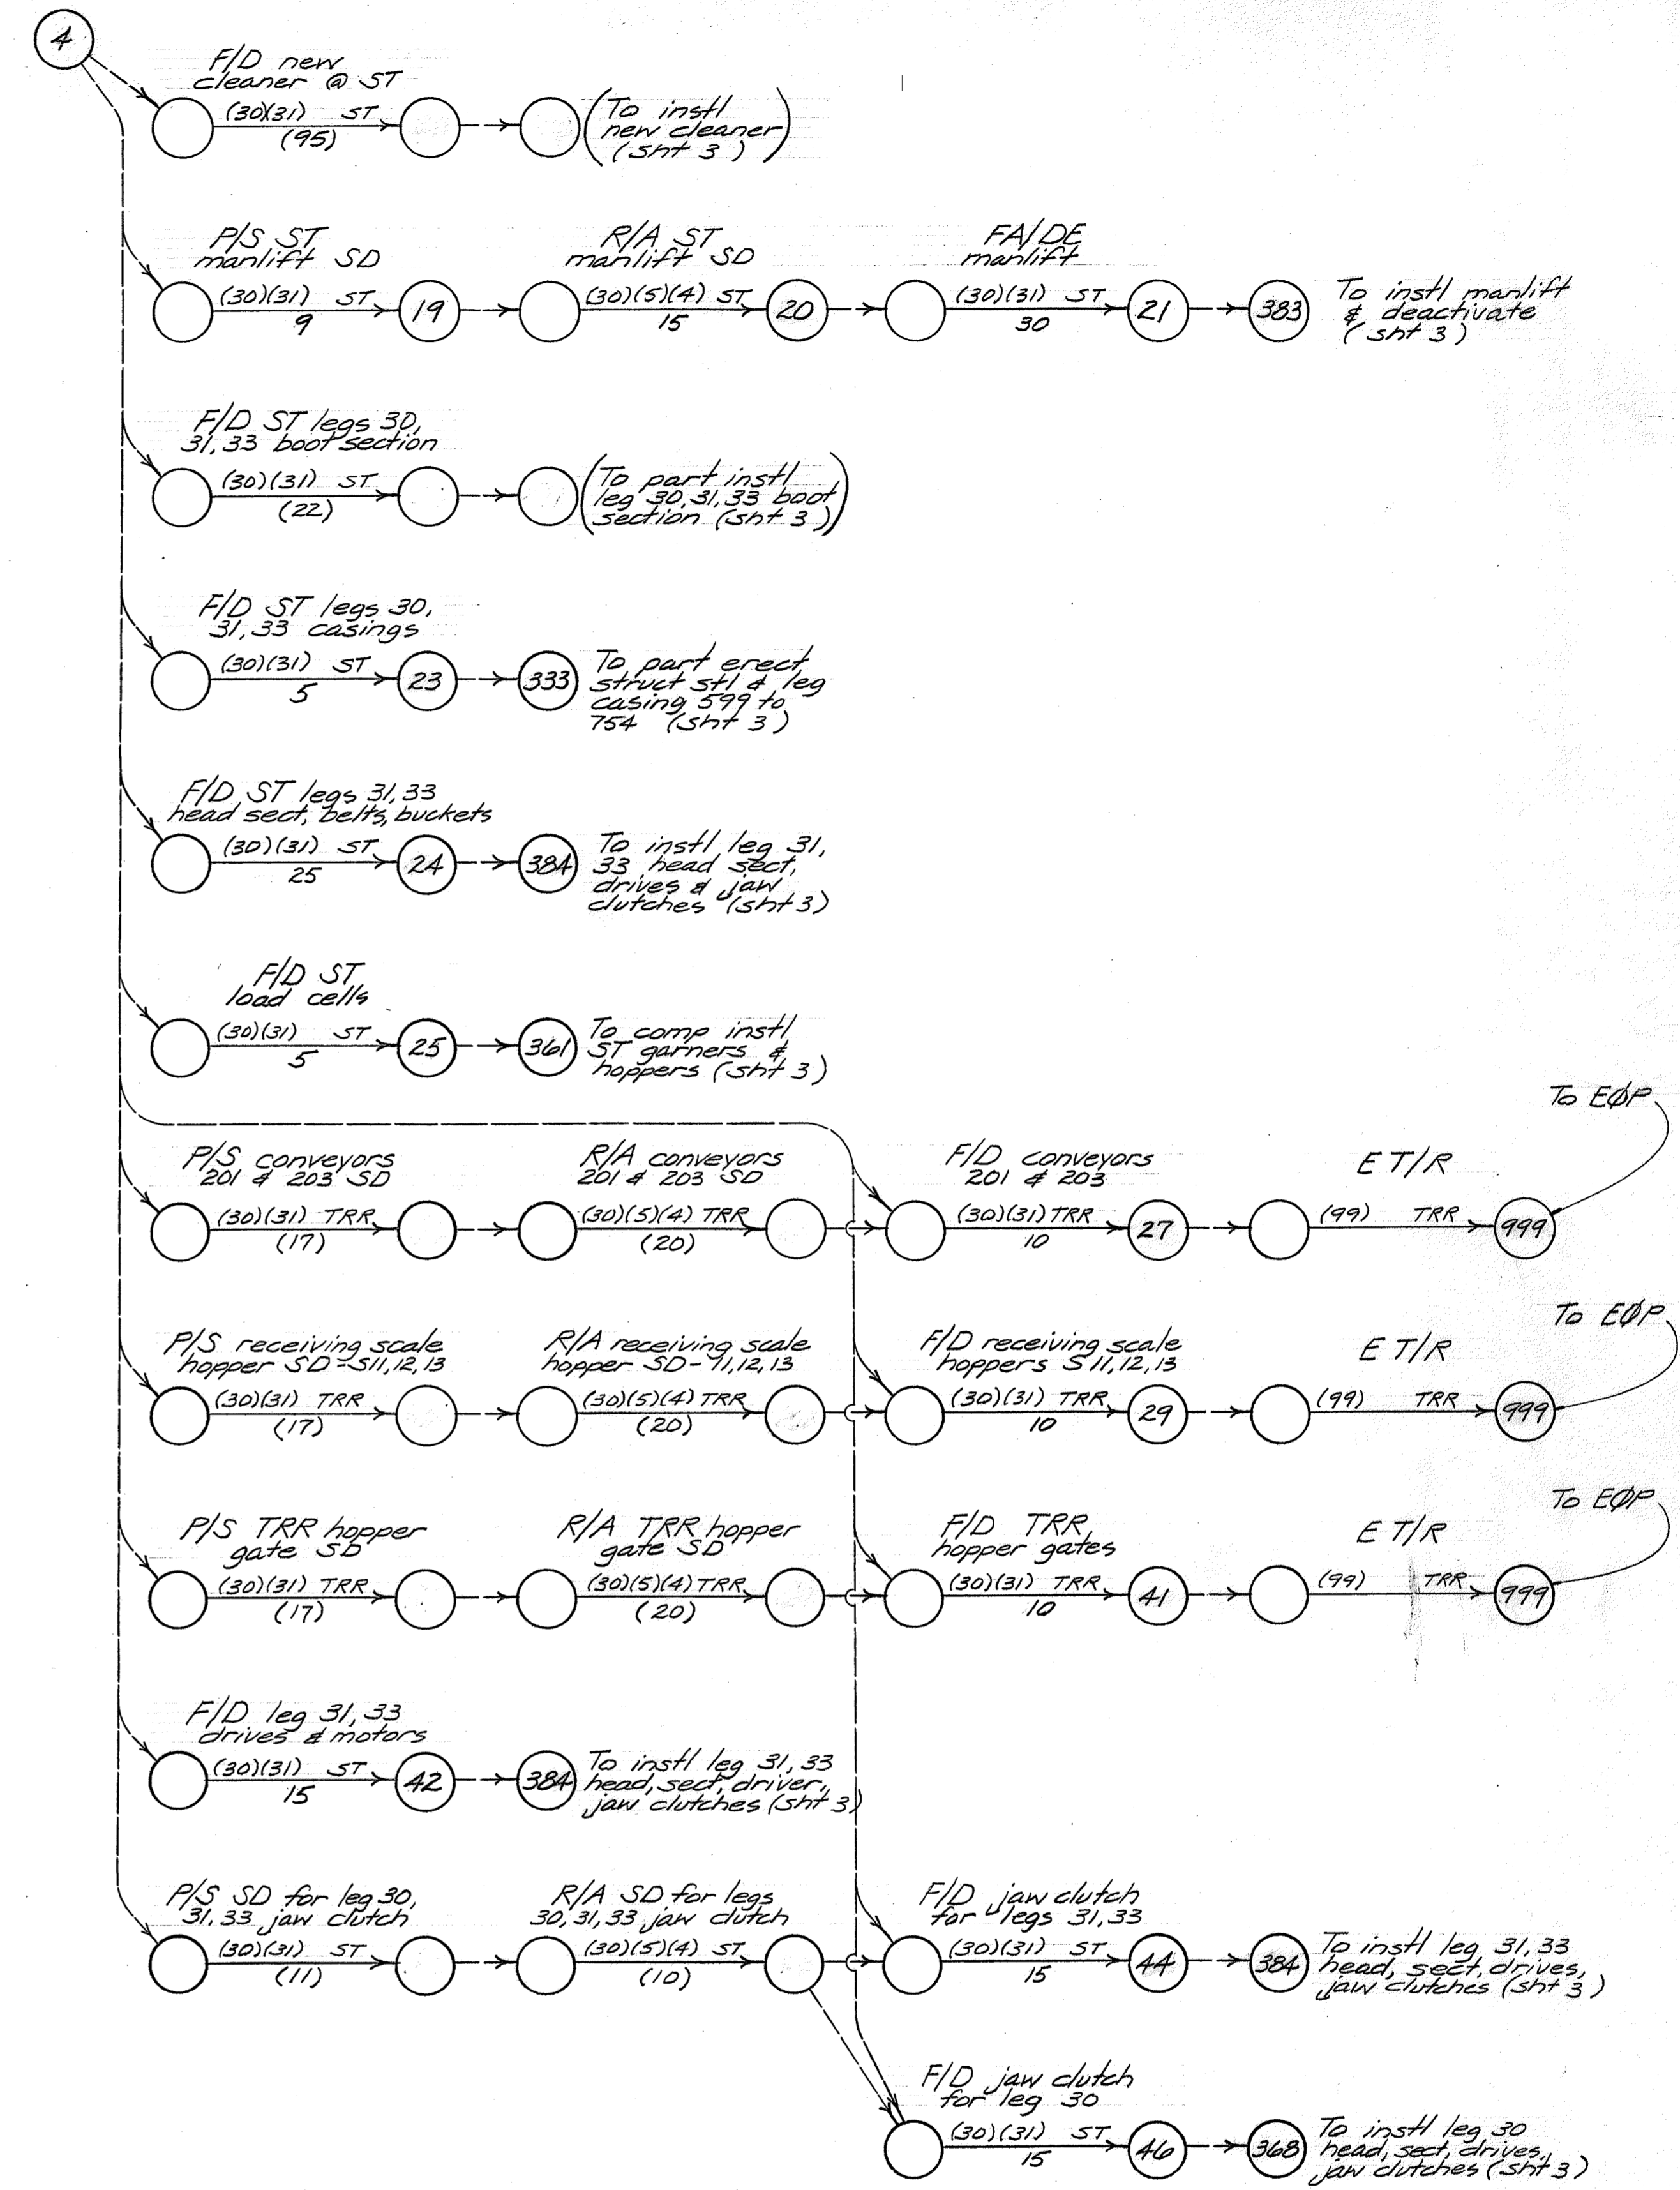 4
F/D new
cleaner @ ST
(30)(31) ST
(95)
(To instl
new cleaner
(sht 3))
P/S ST
manlift SD
(30)(31) ST
9
19
R/A ST
manlift SD
(30)(5)(4) ST
15
20
FA/DE
manlift
(30)(31) ST
30
21
383
To instl manlift
& deactivate
(sht 3)
F/D ST legs 30,
31,33 boot section
(30)(31) ST
(22)
(To part instl
leg 30,31,33 boot
section (sht 3))
F/D ST legs 30,
31,33 casings
(30)(31) ST
5
23
333
To part erect
struct stl & leg
casing 599 to
754 (sht 3)
F/D ST legs 31,33
head sect, belts, buckets
(30)(31) ST
25
24
384
To instl leg 31,
33 head sect,
drives & jaw
clutches (sht 3)
F/D ST
load cells
(30)(31) ST
5
25
361
To comp instl
ST garners &
hoppers (sht 3)
To EØP
P/S conveyors
201 & 203 SD
(30)(31) TRR
(17)
R/A conveyors
201 & 203 SD
(30)(5)(4) TRR
(20)
F/D conveyors
201 & 203
(30)(31) TRR
10
27
E T/R
(99) TRR
999
To EØP
P/S receiving scale
hopper SD-S11,12,13
(30)(31) TRR
(17)
R/A receiving scale
hopper SD-11,12,13
(30)(5)(4) TRR
(20)
F/D receiving scale
hoppers S11,12,13
(30)(31) TRR
10
29
E T/R
(99) TRR
999
To EØP
P/S TRR hopper
gate SD
(30)(31) TRR
(17)
R/A TRR hopper
gate SD
(30)(5)(4) TRR
(20)
F/D TRR
hopper gates
(30)(31) TRR
10
41
E T/R
(99) TRR
999
F/D leg 31,33
drives & motors
(30)(31) ST
15
42
384
To instl leg 31,33
head, sect, driver,
jaw clutches (sht 3)
P/S SD for leg 30,
31,33 jaw clutch
(30)(31) ST
(11)
R/A SD for legs
30,31,33 jaw clutch
(30)(5)(4) ST
(10)
F/D jaw clutch
for legs 31,33
(30)(31) ST
15
44
384
To instl leg 31,33
head, sect, drives,
jaw clutches (sht 3)
F/D jaw clutch
for leg 30
(30)(31) ST
15
46
368
To instl leg 30
head, sect, drives,
jaw clutches (sht 3)